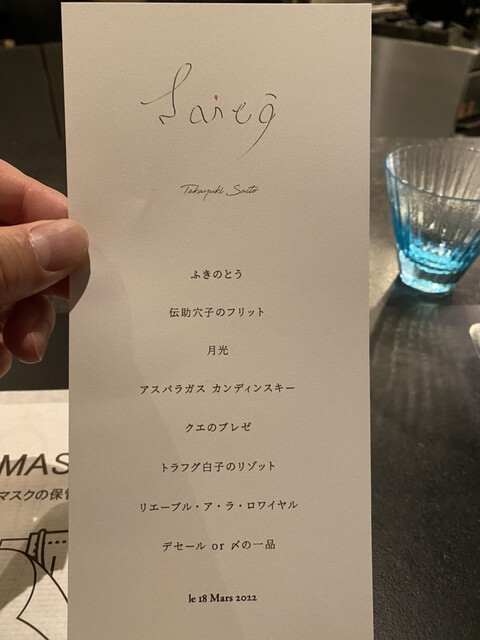 Saitō
Takayuki Saito
ふきのとう
伝助穴子のフリット
月光
アスパラガス カンディンスキー
クエのブレゼ
トラフグ白子のリゾット
リエーブル・ア・ラ・ロワイヤル
デセール or 〆の一品
le 18 Mars 2022
MAS
マスクの保